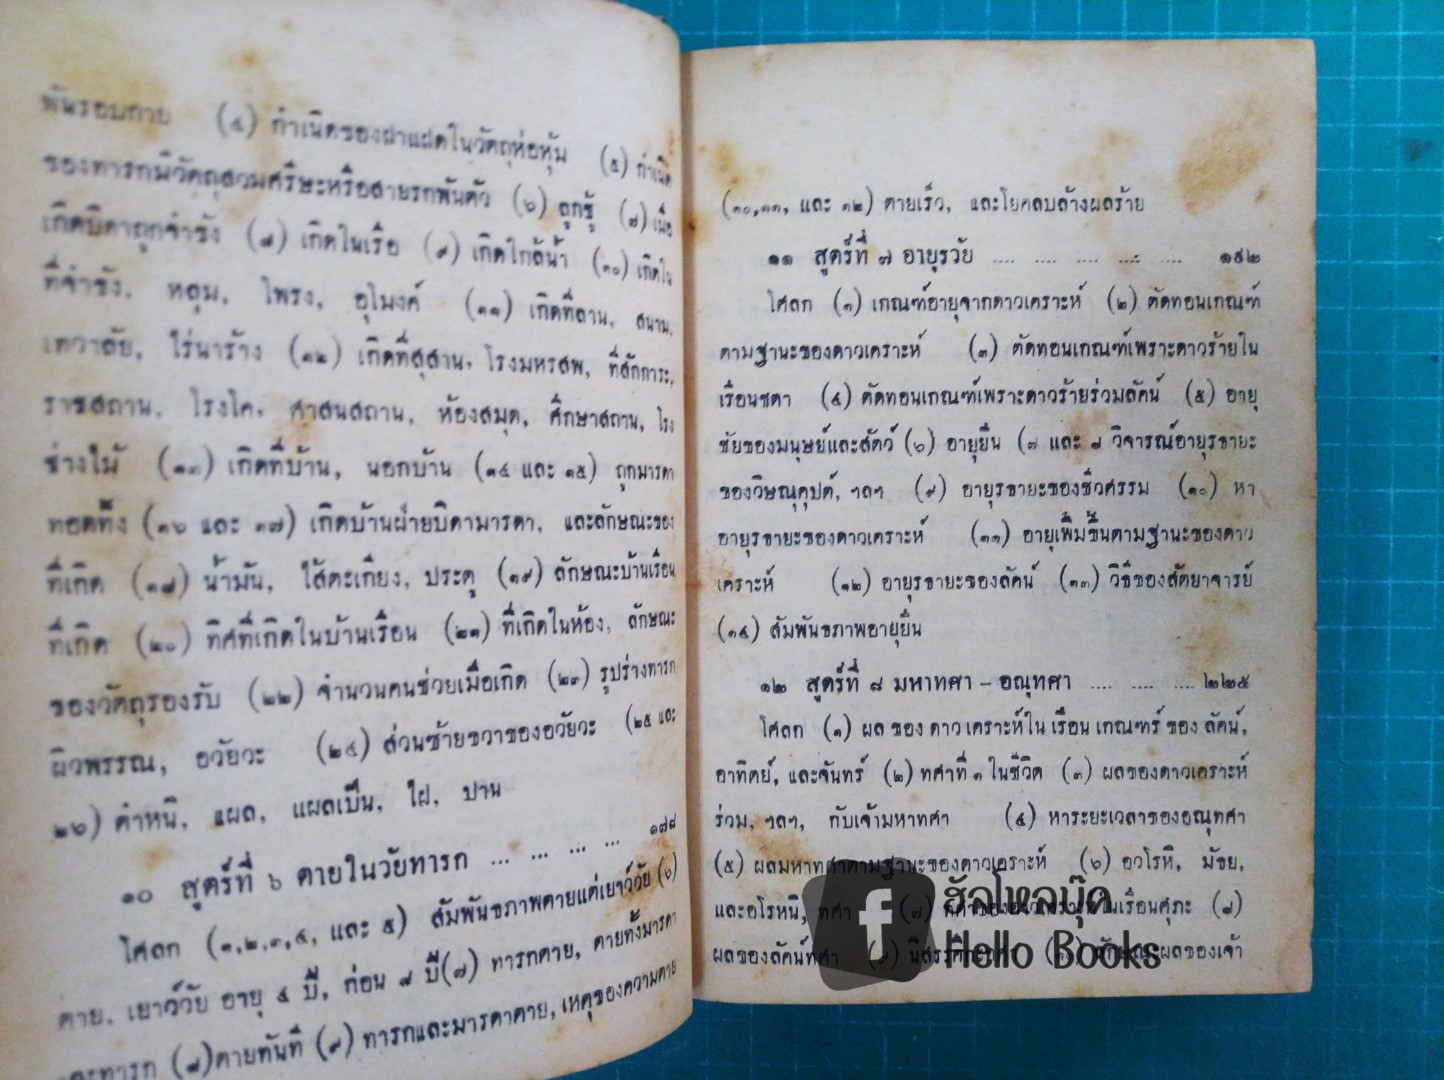 พันรอบกาย (๔) กำเนิดของฝาแฝดในวัตถุห่อหุ้ม (๕) กำเนิด
ของทารกมีวัตถุสวมศรีษะหรือสายรกพันตัว (๖) ลูกชู้ (๗) เมื่อ
เกิดบิดาถูกจำขัง (๘) เกิดในเรือ (๙) เกิดใกล้น้ำ (๑๐) เกิดใน
ที่จำขัง, หลุม, โพรง, อุโมงค์ (๑๑) เกิดที่ลาน, สนาม,
เทวาลัย, ไร่นาร้าง (๑๒) เกิดที่สุสาน, โรงมหรสพ, ที่สักการะ,
ราชสถาน, โรงโค, ศาสนสถาน, ห้องสมุด, ศึกษาสถาน, โรง
ช่างไม้ (๑๓) เกิดที่บ้าน, นอกบ้าน (๑๔ และ ๑๕) ถูกมารดา
ทอดทิ้ง (๑๖ และ ๑๗) เกิดบ้านฝ่ายบิดามารดา, และลักษณะของ
ที่เกิด (๑๘) น้ำมัน, ไส้ตะเกียง, ประตู (๑๙) ลักษณะบ้านเรือน
ที่เกิด (๒๐) ทิศที่เกิดในบ้านเรือน (๒๑) ที่เกิดในห้อง, ลักษณะ
ของวัตถุรองรับ (๒๒) จำนวนคนช่วยเมื่อเกิด (๒๓) รูปร่างทารก
ผิวพรรณ, อวัยวะ (๒๔) ส่วนซ้ายขวาของอวัยวะ (๒๕ และ
๒๖) ตำหนิ, แผล, แผลเป็น, ไฝ, ปาน
๑๐ สูตร์ที่ ๖ ตายในวัยทารก ... ... ... ... ๑๗๘
โศลก (๑,๒,๓,๔, และ ๕) สัมพันธภาพตายแต่เยาว์วัย (๖)
ตาย, เยาว์วัย อายุ ๔ ปี, ก่อน ๘ ปี (๗) ทารกตาย, ตายทั้งมารดา
และทารก (๘) ตายทันที (๙) ทารกและมารดาตาย, เหตุของความตาย
(๑๐,๑๑, และ ๑๒) ตายเร็ว, และโยคลบล้างผลร้าย
๑๑ สูตร์ที่ ๗ อายุรวัย .... .... .... .... .... ๑๙๒
โศลก (๑) เกณฑ์อายุจากดาวเคราะห์ (๒) ตัดทอนเกณฑ์
ตามฐานะของดาวเคราะห์ (๓) ตัดทอนเกณฑ์เพราะดาวร้ายใน
เรือนชตา (๔) ตัดทอนเกณฑ์เพราะดาวร้ายร่วมลัคน์ (๕) อายุ
ขัยของมนุษย์และสัตว์ (๖) อายุยืน (๗ และ ๘ วิจารณ์อายุรขายะ
ของวิษณุคุปต์, ฯลฯ (๙) อายุรขายะของชีวศรรม (๑๐) หา
อายุรขายะของดาวเคราะห์ (๑๑) อายุเพิ่มขึ้นตามฐานะของดาว
เคราะห์ (๑๒) อายุรขายะของลัคน์ (๑๓) วิธีของสัตยาจารย์
(๑๔) สัมพันธภาพอายุยืน
๑๒ สูตร์ที่ ๘ มหาทศา – อณุทศา .... .... .... ๒๒๕
โศลก (๑) ผล ของ ดาว เคราะห์ใน เรือน เกณฑร์ ของ ลัคน์,
อาทิตย์, และจันทร์ (๒) ทศาที่ ๑ ในชีวิต (๓) ผลของดาวเคราะห์
ร่วม, ฯลฯ, กับเจ้ามหาทศา (๔) หาระยะเวลาของอณุทศา
(๕) ผลมหาทศาตามฐานะของดาวเคราะห์ (๖) อวโรหิ, มัธย,
และอโรหนิ, ทศา (๗) ในเรือนศุภะ (๘)
ผลของลัคน์ทศา (๙) ผลของเจ้า
ฮัลโหลบุ๊ค
Hello Books